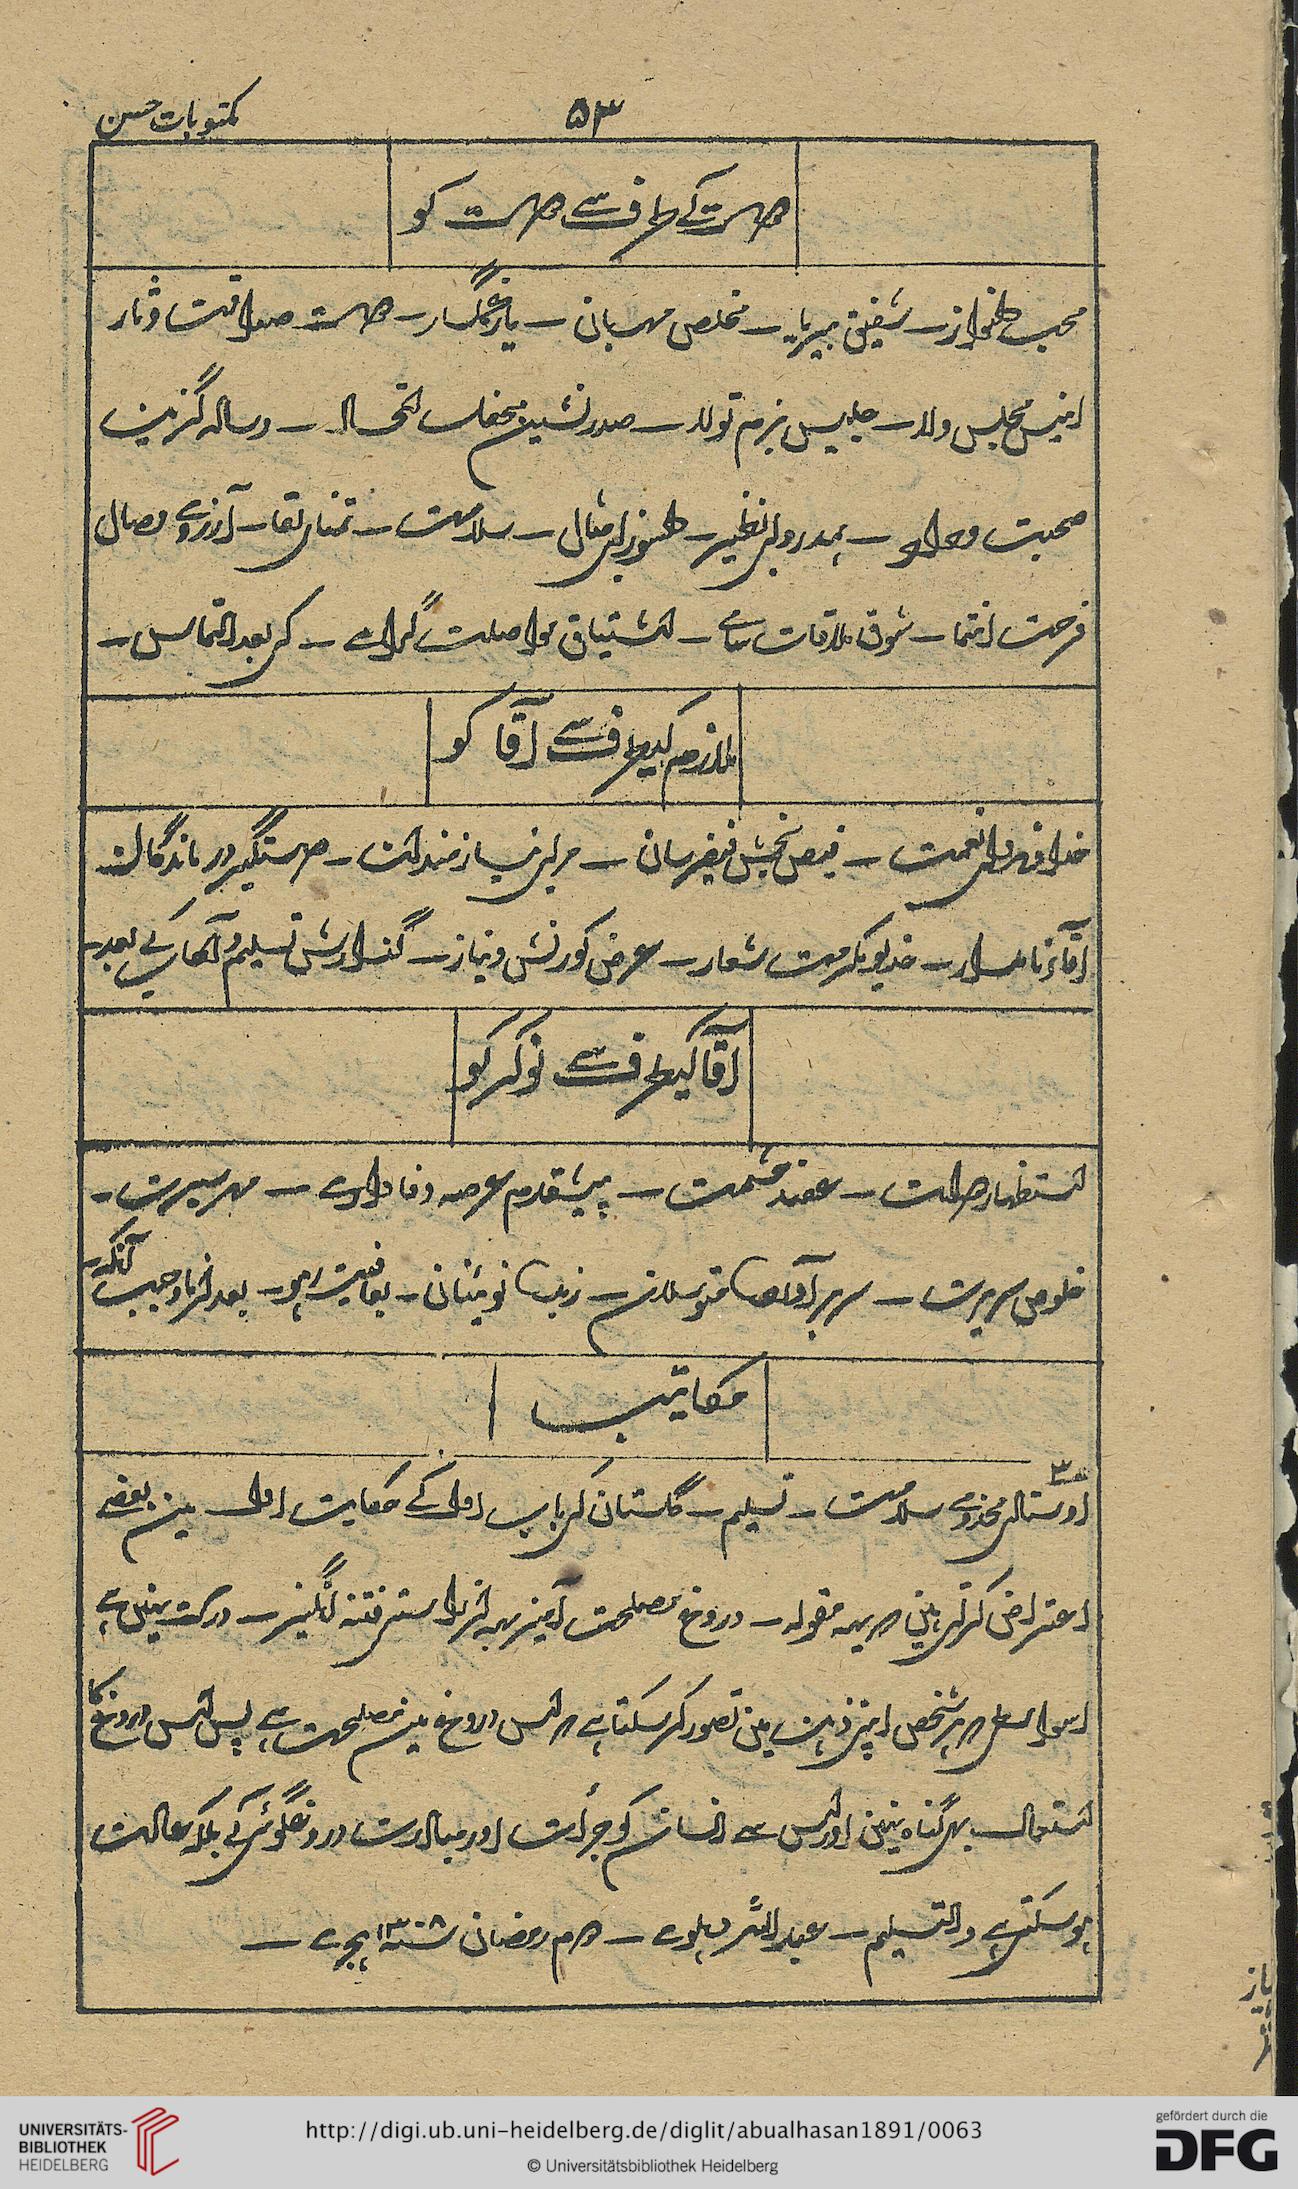 مکتوبات حسن
۵۳
دوست کے طرف سے دوست کو
محب دلنواز ـ شفیق بیریا ـ مخلص مہربان ـ یار غمگسار ـ دوست صداقت دثار
انیس مجلس ولا ـ جلیس بزم تولا ـ صدر نشین محفل اتحاد ـ وسادہ گزین
محبت و وداد ـ ہمدرد بی نظیر ـ دلسوز بی مثال ـ سلامت ـ تمنای لقا ـ آرزوی وصال
فرحت انتما ـ شوق ملاقات سامی ـ اشتیاق مواصلت گرامی ـ کی بعد التماس ـ
ملازم کیطرف سے آقا کو
خداوند ولی نعمت ـ فیض بخش فیضرسان ـ مربی نیازمندان ـ دستگیر درماندگان
آقای نامدار ـ خدیو مکرمت شعار ـ عرض کورنش و نیاز ـ گذارش تسلیم و آداب کے بعد ـ
آقا کیطرف سے نوکر کو
استظہار دولت ـ عضد حشمت ـ پیشقدم عرصہ وفاداری ـ مہر سیرت ـ
خلوص سریرت ـ سر برآوردہ متوسلان ـ زبدہ نوئینان ـ بعافیت رہو ـ بعد از ما وجب آنکہ ـ
مکاتیب
۳۰
اوستادی مخدومی سلامت ـ تسلیم ـ گلستان کی باب اول کے حکایت اول مین بعضے
اعتراض کرتی ہین کہ یہہ مقولہ ـ دروغ مصلحت آمیز بہ از راستی فتنہ انگیز ـ درست نہین ہے
اسواسطی کہ ہر شخص اپنی ذہن مین تصور کر سکتا ہے کہ اس دروغ مین مصلحت ہے پس اس دروغ کا
استعمال بہی گناہ نہین اور اس سے انسان کو جرأت اور مبادرت دروغگوئی کے بلکہ عادت
ہو سکتی ہے والتسلیم ـ عبداللہ دہلوے ـ دوم رمضان ہجرے ـ
UNIVERSITÄTS-BIBLIOTHEK HEIDELBERG
http://digi.ub.uni-heidelberg.de/diglit/abualhasan1891/0063
© Universitätsbibliothek Heidelberg
gefördert durch die
DFG